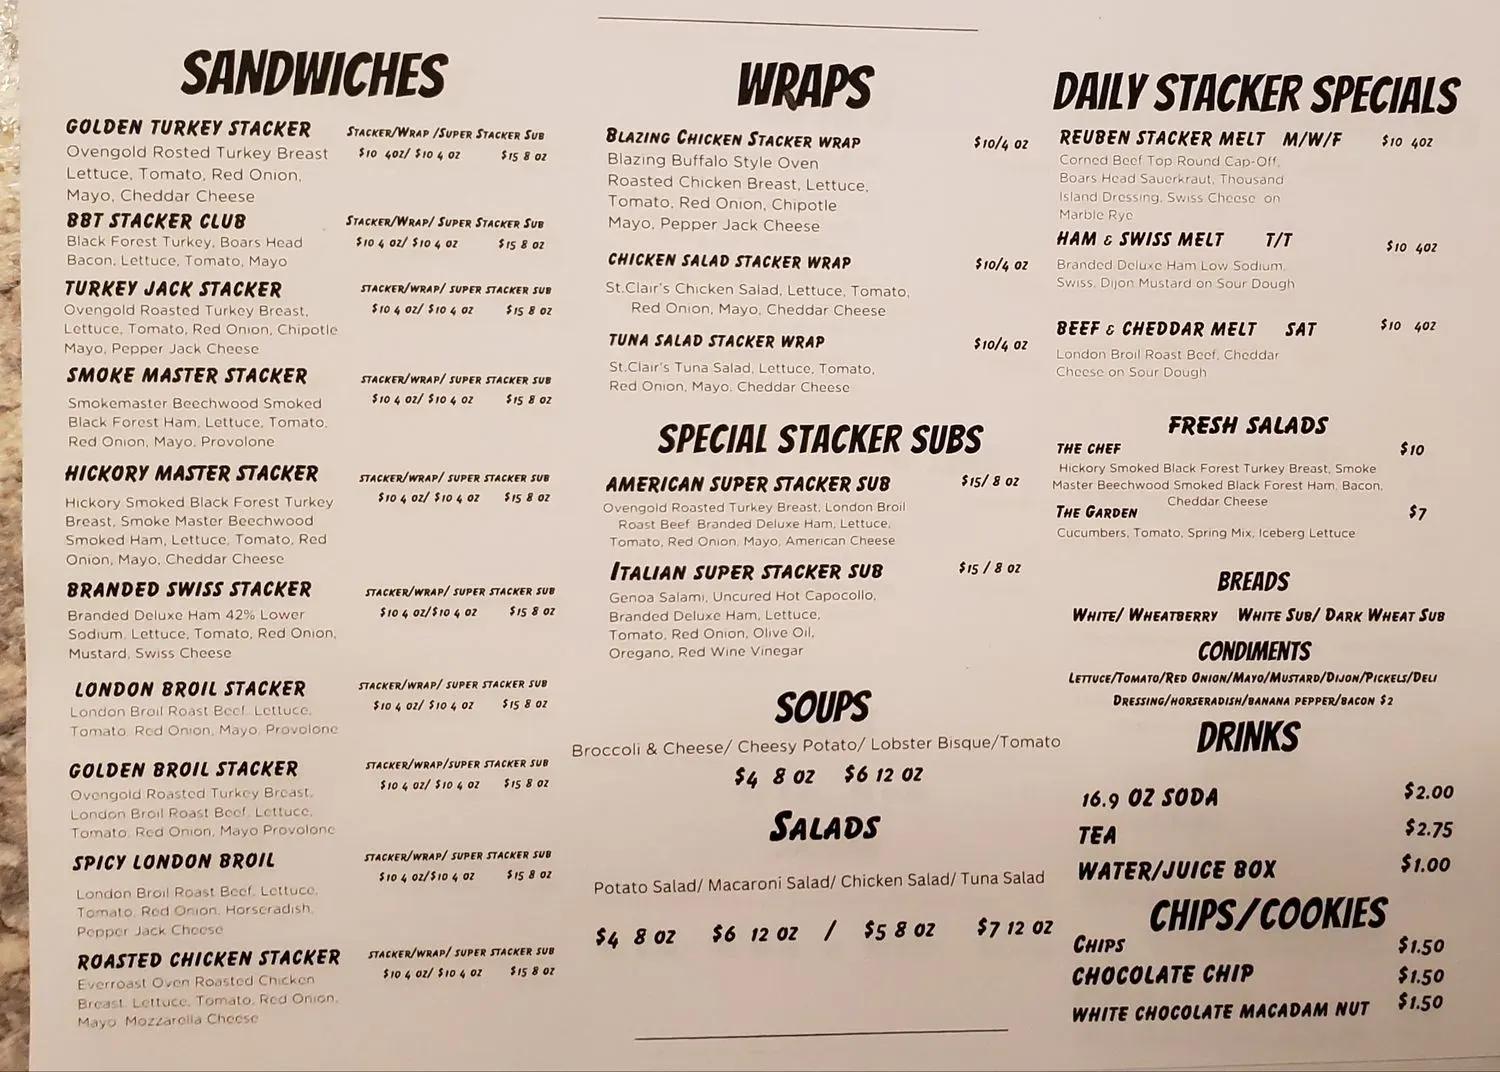 SANDWICHES
GOLDEN TURKEY STACKER
STACKER/WRAP /SUPER STACKER SUB
Ovengold Rosted Turkey Breast
$10 4OZ/ $10 4 OZ $15 8 OZ
Lettuce, Tomato, Red Onion,
Mayo, Cheddar Cheese
BBT STACKER CLUB
STACKER/WRAP/ SUPER STACKER SUB
Black Forest Turkey, Boars Head
$10 4 OZ/ $10 4 OZ $15 8 OZ
Bacon, Lettuce, Tomato, Mayo
TURKEY JACK STACKER
STACKER/WRAP/ SUPER STACKER SUB
Ovengold Roasted Turkey Breast,
$10 4 OZ/ $10 4 OZ $15 8 OZ
Lettuce, Tomato, Red Onion, Chipotle
Mayo, Pepper Jack Cheese
SMOKE MASTER STACKER
STACKER/WRAP/ SUPER STACKER SUB
Smokemaster Beechwood Smoked
$10 4 OZ/ $10 4 OZ $15 8 OZ
Black Forest Ham, Lettuce, Tomato,
Red Onion, Mayo, Provolone
HICKORY MASTER STACKER
STACKER/WRAP/ SUPER STACKER SUB
Hickory Smoked Black Forest Turkey
$10 4 OZ/ $10 4 OZ $15 8 OZ
Breast, Smoke Master Beechwood
Smoked Ham, Lettuce, Tomato, Red
Onion, Mayo, Cheddar Cheese
BRANDED SWISS STACKER
STACKER/WRAP/ SUPER STACKER SUB
Branded Deluxe Ham 42% Lower
$10 4 OZ/$10 4 OZ $15 8 OZ
Sodium, Lettuce, Tomato, Red Onion,
Mustard, Swiss Cheese
LONDON BROIL STACKER
STACKER/WRAP/ SUPER STACKER SUB
London Broil Roast Beef, Lettuce,
$10 4 OZ/ $10 4 OZ $15 8 OZ
Tomato, Red Onion, Mayo, Provolone
GOLDEN BROIL STACKER
STACKER/WRAP/SUPER STACKER SUB
Ovengold Roasted Turkey Breast,
$10 4 OZ/ $10 4 OZ $15 8 OZ
London Broil Roast Beef, Lettuce,
Tomato, Red Onion, Mayo Provolone
SPICY LONDON BROIL
STACKER/WRAP/ SUPER STACKER SUB
London Broil Roast Beef, Lettuce,
$10 4 OZ/$10 4 OZ $15 8 OZ
Tomato, Red Onion, Horseradish,
Pepper Jack Cheese
ROASTED CHICKEN STACKER
STACKER/WRAP/ SUPER STACKER SUB
Everroast Oven Roasted Chicken
$10 4 OZ/ $10 4 OZ $15 8 OZ
Breast, Lettuce, Tomato, Red Onion,
Mayo Mozzarella Cheese
WRAPS
BLAZING CHICKEN STACKER WRAP $10/4 OZ
Blazing Buffalo Style Oven
Roasted Chicken Breast, Lettuce,
Tomato, Red Onion, Chipotle
Mayo, Pepper Jack Cheese
CHICKEN SALAD STACKER WRAP $10/4 OZ
St.Clair's Chicken Salad, Lettuce, Tomato,
Red Onion, Mayo, Cheddar Cheese
TUNA SALAD STACKER WRAP $10/4 OZ
St.Clair's Tuna Salad, Lettuce, Tomato,
Red Onion, Mayo, Cheddar Cheese
SPECIAL STACKER SUBS
AMERICAN SUPER STACKER SUB $15/ 8 OZ
Ovengold Roasted Turkey Breast, London Broil
Roast Beef, Branded Deluxe Ham, Lettuce,
Tomato, Red Onion, Mayo, American Cheese
ITALIAN SUPER STACKER SUB $15 / 8 OZ
Genoa Salami, Uncured Hot Capocollo,
Branded Deluxe Ham, Lettuce,
Tomato, Red Onion, Olive Oil,
Oregano, Red Wine Vinegar
SOUPS
Broccoli & Cheese/ Cheesy Potato/ Lobster Bisque/Tomato
$4 8 OZ $6 12 OZ
SALADS
Potato Salad/ Macaroni Salad/ Chicken Salad/ Tuna Salad
$4 8 OZ $6 12 OZ / $5 8 OZ $7 12 OZ
DAILY STACKER SPECIALS
REUBEN STACKER MELT M/W/F $10 4OZ
Corned Beef Top Round Cap-Off,
Boars Head Sauerkraut, Thousand
Island Dressing, Swiss Cheese on
Marble Rye
HAM & SWISS MELT T/T $10 4OZ
Branded Deluxe Ham Low Sodium,
Swiss, Dijon Mustard on Sour Dough
BEEF & CHEDDAR MELT SAT $10 4OZ
London Broil Roast Beef, Cheddar
Cheese on Sour Dough
FRESH SALADS
THE CHEF $10
Hickory Smoked Black Forest Turkey Breast, Smoke
Master Beechwood Smoked Black Forest Ham, Bacon,
Cheddar Cheese
THE GARDEN $7
Cucumbers, Tomato, Spring Mix, Iceberg Lettuce
BREADS
WHITE/ WHEATBERRY WHITE SUB/ DARK WHEAT SUB
CONDIMENTS
LETTUCE/TOMATO/RED ONION/MAYO/MUSTARD/DIJON/PICKELS/DELI
DRESSING/HORSERADISH/BANANA PEPPER/BACON $2
DRINKS
16.9 OZ SODA $2.00
TEA $2.75
WATER/JUICE BOX $1.00
CHIPS/COOKIES
CHIPS $1.50
CHOCOLATE CHIP $1.50
WHITE CHOCOLATE MACADAM NUT $1.50